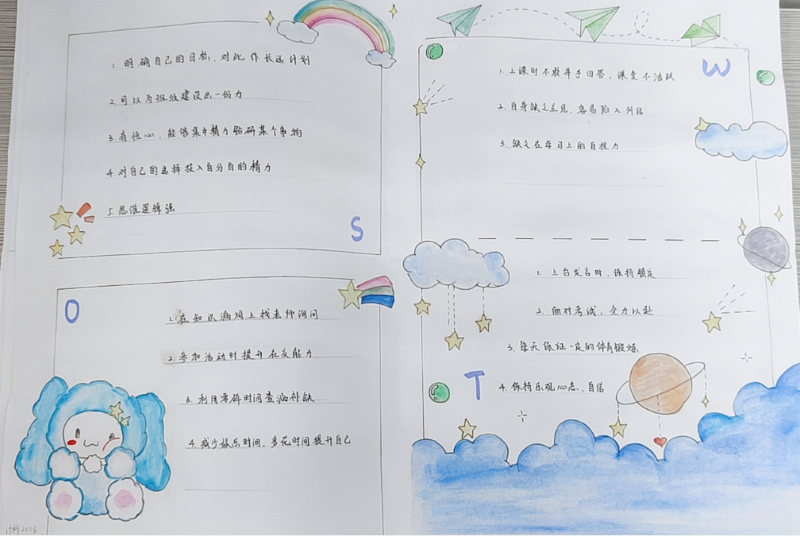 1. 明确自己的目标，对此作长远计划
2. 可以为班级建设出一份力
3. 有恒心，能够集中精力钻研某个事物
4. 对自己的选择投入百分百的精力
5. 思维逻辑强
S
1. 上课时不敢举手回答，课堂不活跃
W
2. 自身缺乏主见，容易陷入纠结
3. 缺乏在学习上的自控力
O
1. 在知识漏洞上找老师询问
2. 参加活动时提升社交能力
3. 利用零碎时间查漏补缺
4. 减少娱乐时间，多花时间提升自己
1. 上台发言时，保持镇定
2. 面对考试，全力以赴
3. 每天保证一定的体育锻炼
4. 保持乐观心态，自信
T